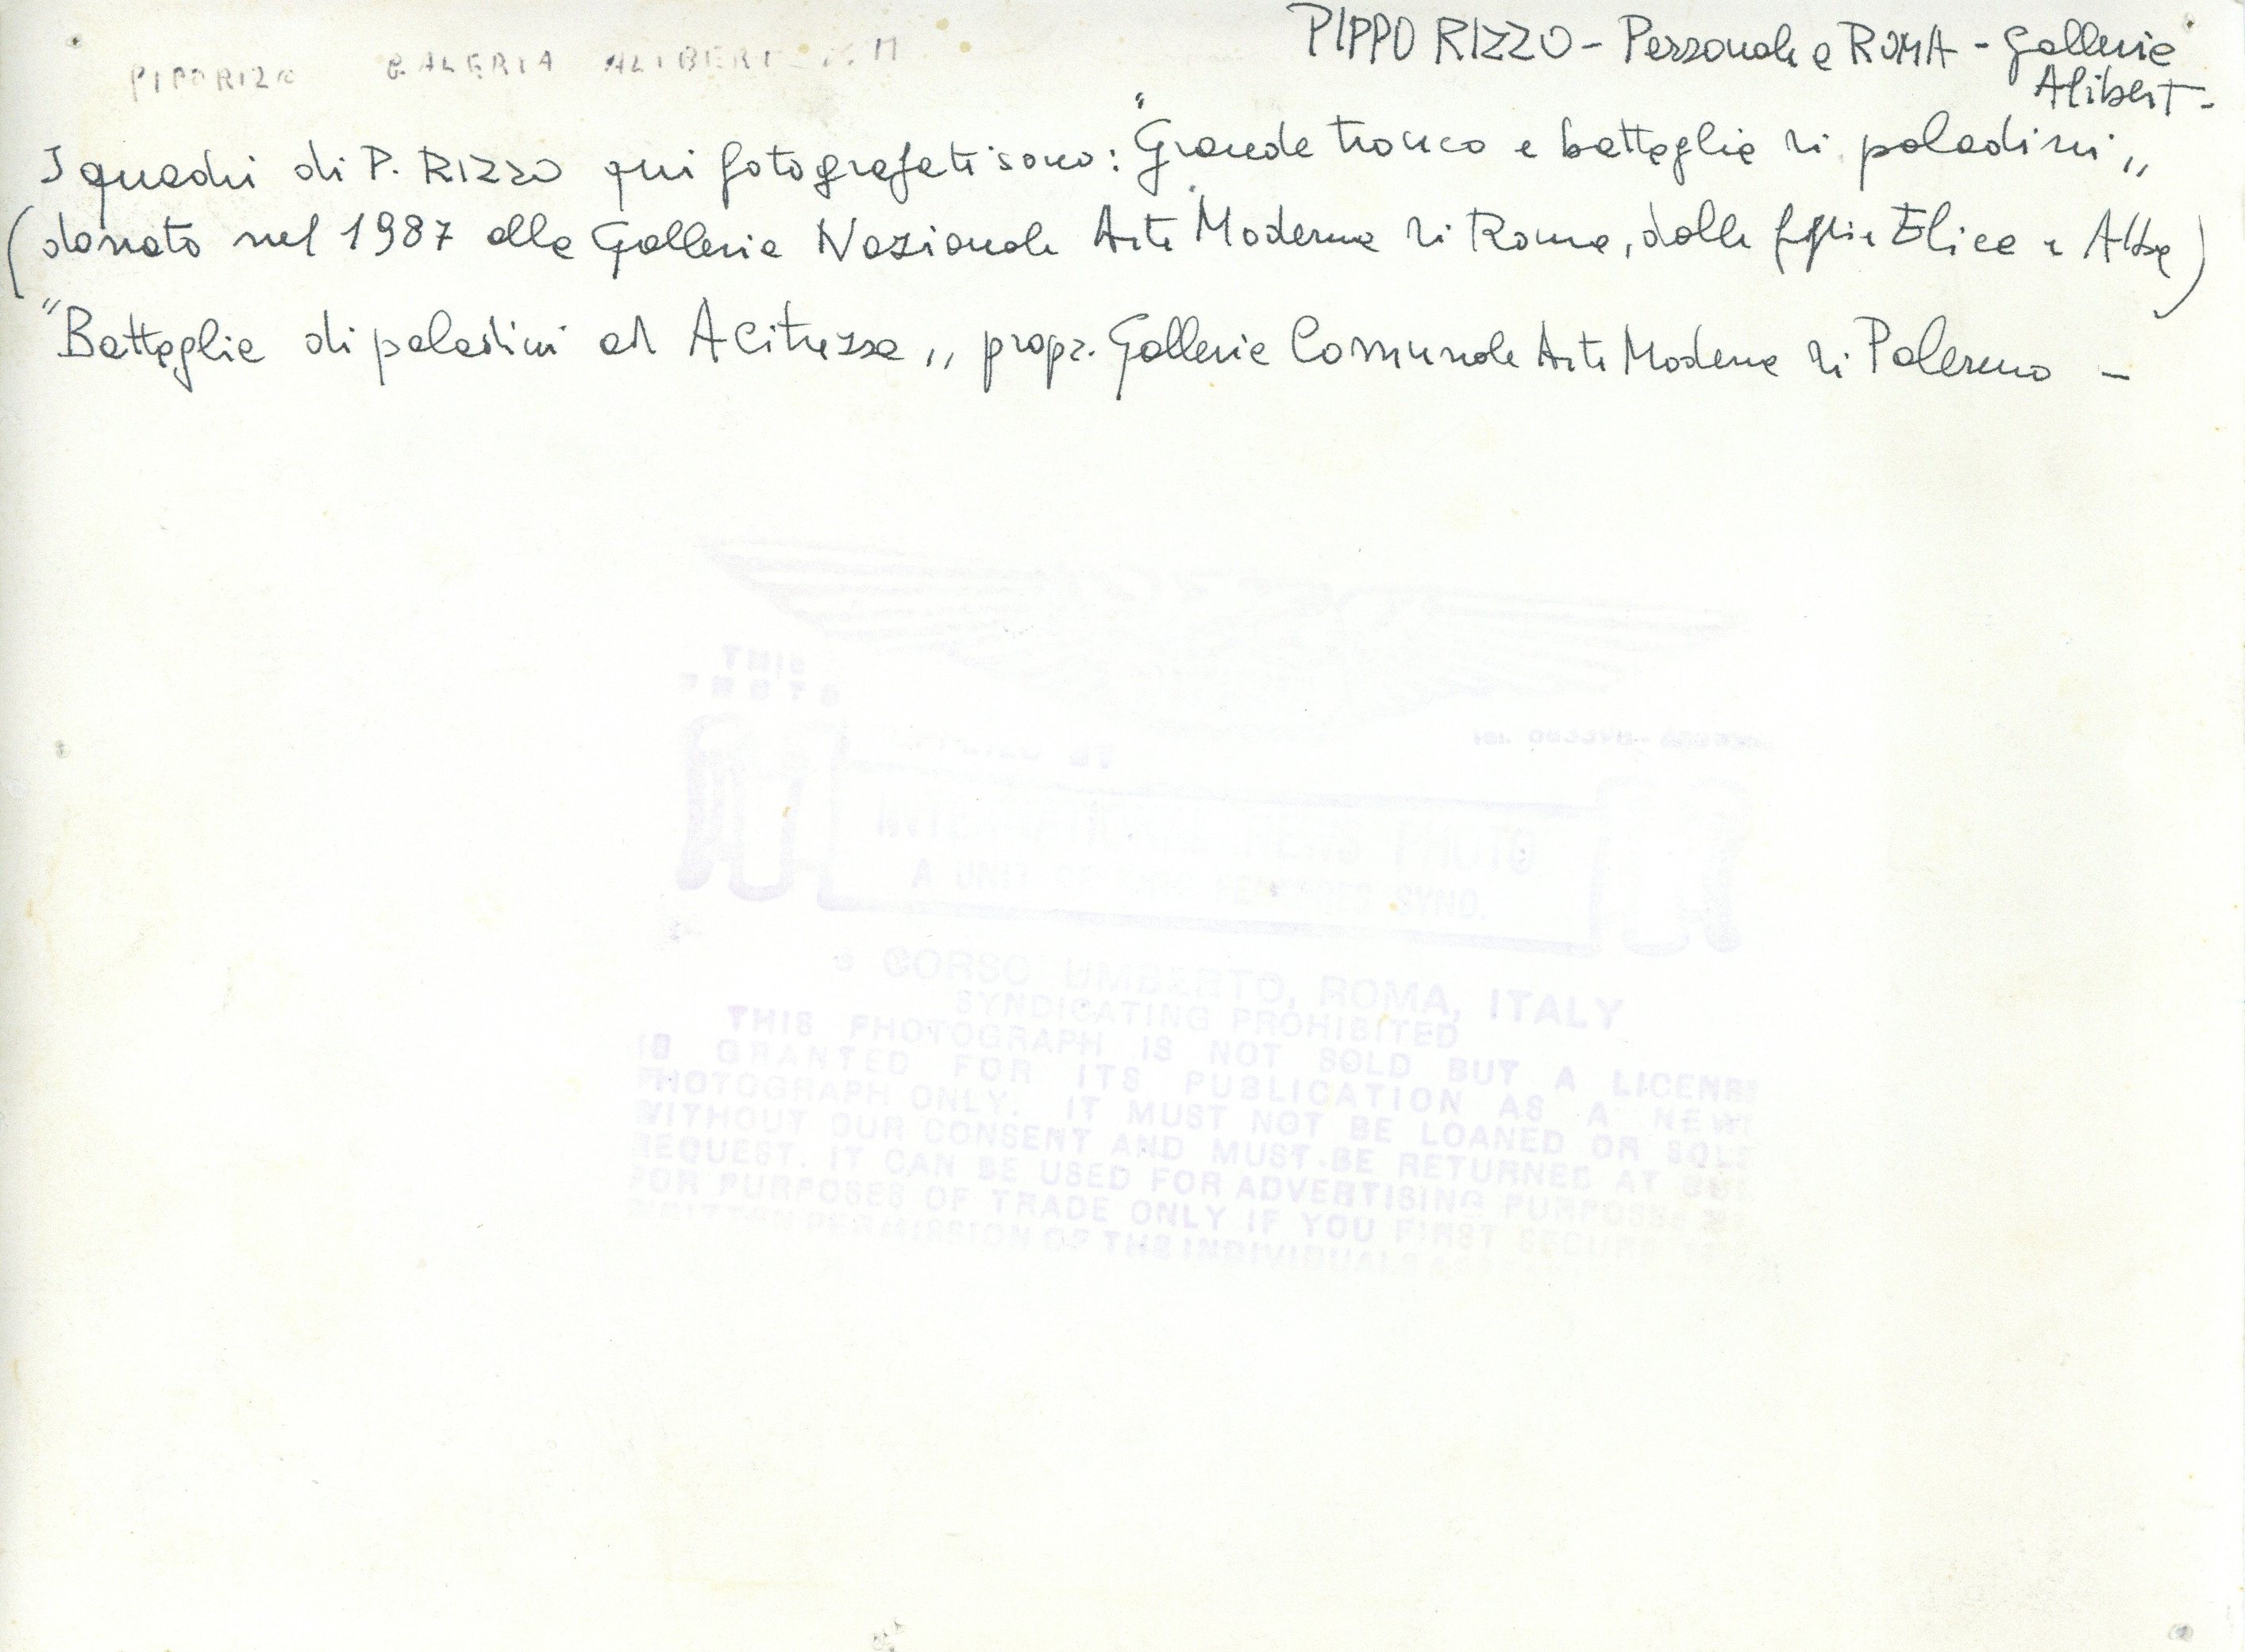 PIPPO RIZZO - Personale a ROMA - Galleria
Alibert -
PIPPO RIZO GALERIA ALIBERT
I quadri di P. RIZZO qui fotografati sono: "Grande tronco e battaglia di paladini"
(donato nel 1987 alla Galleria Nazionale Arte Moderna di Roma, dalle figlie Elica e Alba)
"Battaglia di paladini ad Acitrezza" propr. Galleria Comunale Arte Moderna di Palermo -
THIS
PHOTO
SUPPLIED BY
INTERNATIONAL NEWS PHOTO
A UNIT OF KING FEATURES SYND.
CORSO UMBERTO, ROMA, ITALY
SYNDICATING PROHIBITED
THIS PHOTOGRAPH IS NOT SOLD BUT A LICENSE
IS GRANTED FOR ITS PUBLICATION AS A NEWS
PHOTOGRAPH ONLY. IT MUST NOT BE LOANED OR SOLD
WITHOUT OUR CONSENT AND MUST BE RETURNED AT OUR
REQUEST. IT CAN BE USED FOR ADVERTISING PURPOSES OR
FOR PURPOSES OF TRADE ONLY IF YOU FIRST SECURE THE
WRITTEN PERMISSION OF THE INDIVIDUALS